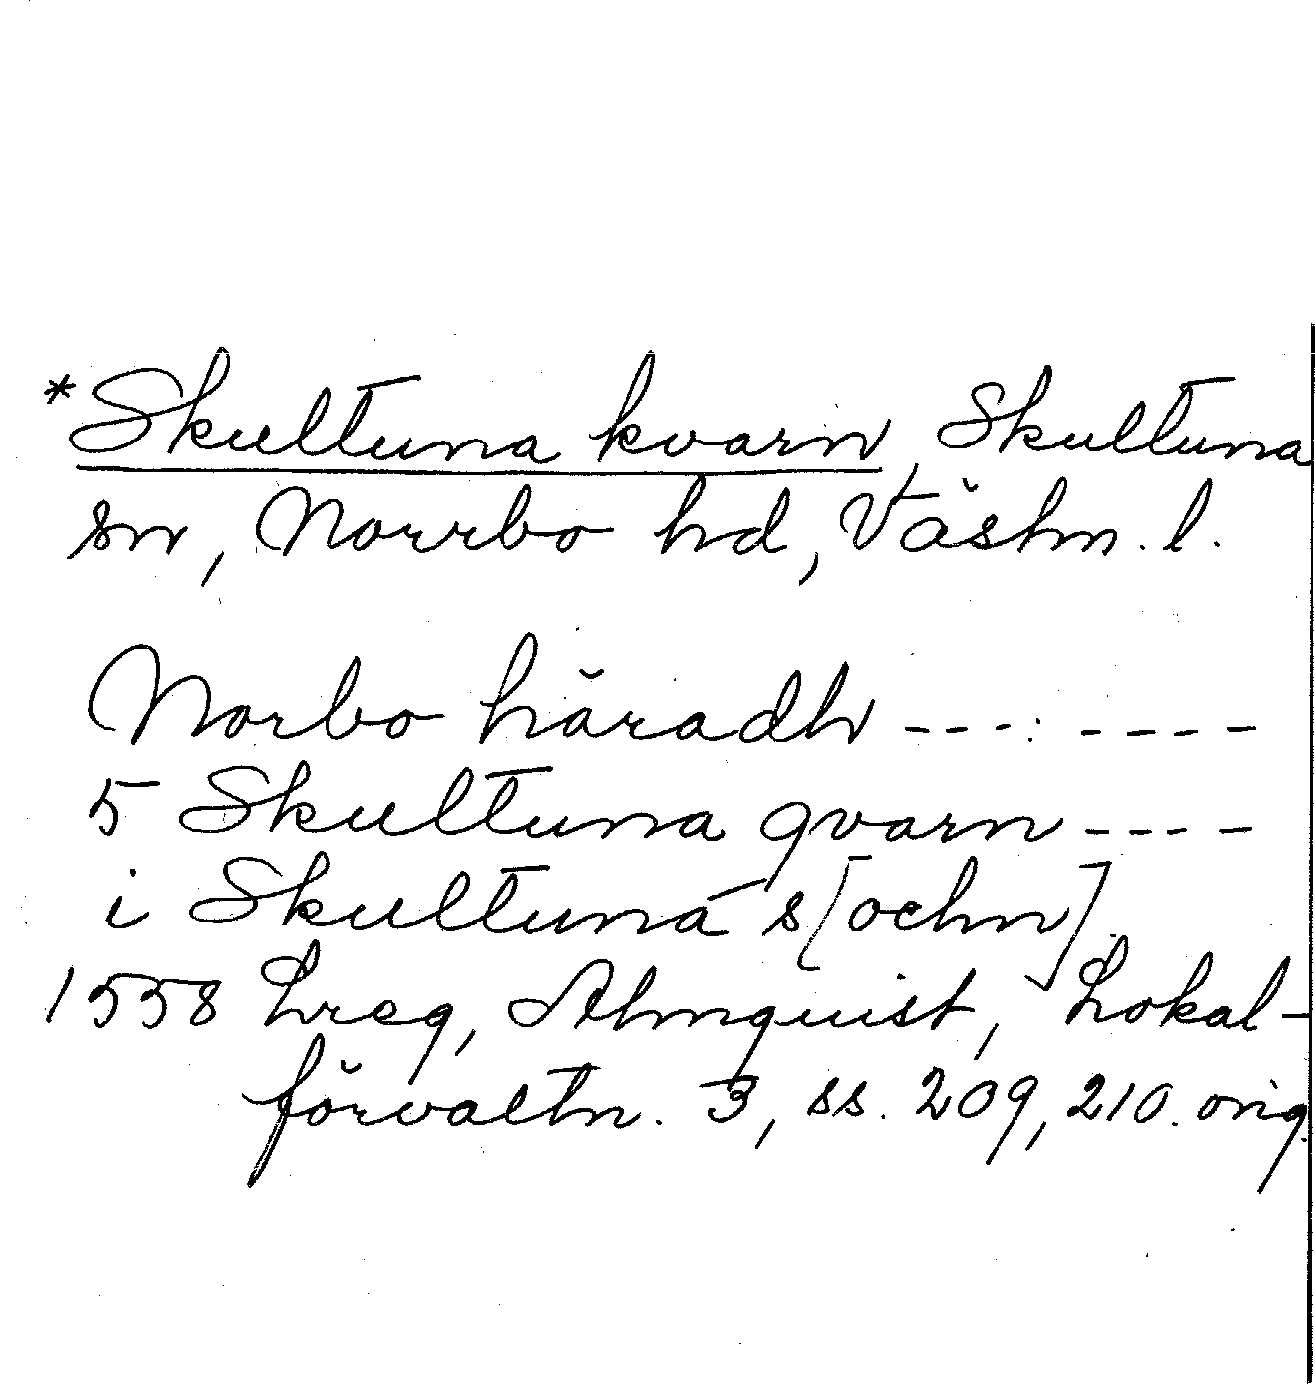 *Skultuna kvarn, Skultuna
sn, Norrbo hd, Västm. l.
Norbo häradh --- ----
5 Skultuna qvarn ----
i Skultuna s[ochn]
1558 Lreg, Almquist, Lokal-
förvaltn. 3, ss. 209, 210. orig.